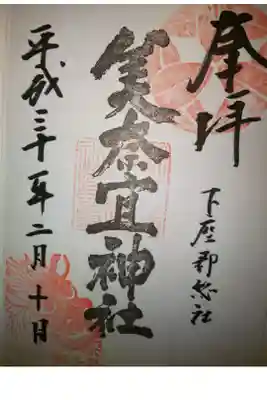 奉拝
下座郡惣社
美奈宜神社
平成三十年二月十日